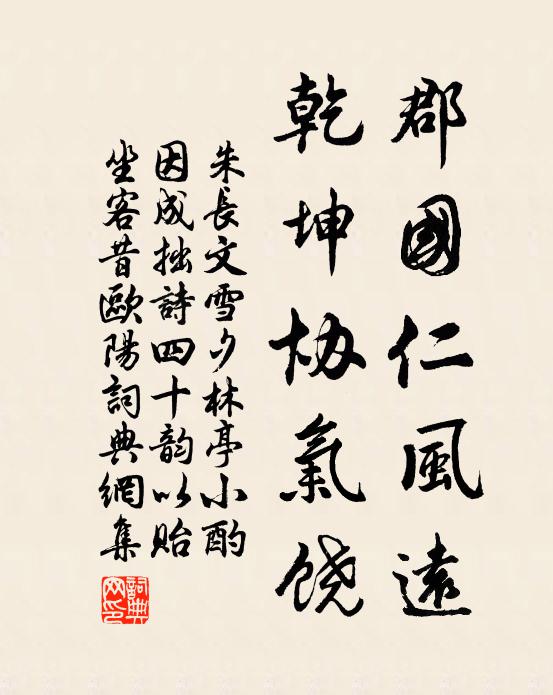 郡國仁風遠
乾坤协氣饶
朱長文雪夕林亭小酌
因成拙詩四十韵以贻
坐客昔歐陽詞典網集
詞典网印